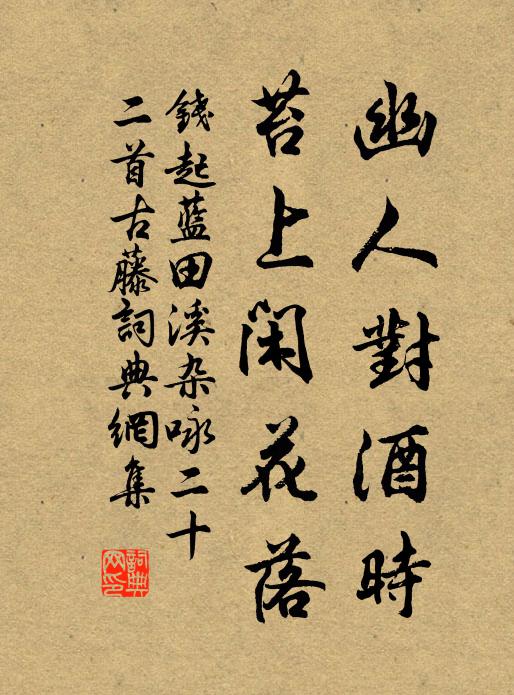 幽人對酒時
苔上閑花落
錢起藍田溪杂咏二十
二首古藤詞典網集
詞典
网印